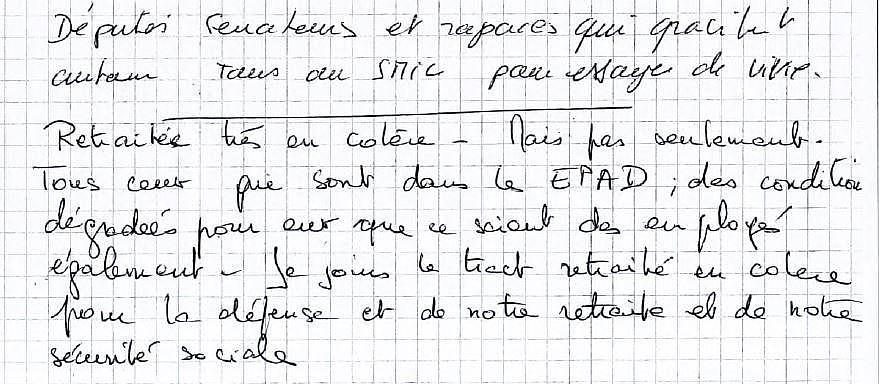 Députés Senateurs et rapaces qui gravitent
autour Tous au SMIC pour essayer de vivre.
Retraitée très en colère - Mais pas seulement.
Tous ceux que sont dans le EPAD ; des condition
dégradées pour eux que ce soient des employés
également - Je joins le tract retraité en colere
pour la défense et de notre retraite et de notre
sécurité sociale